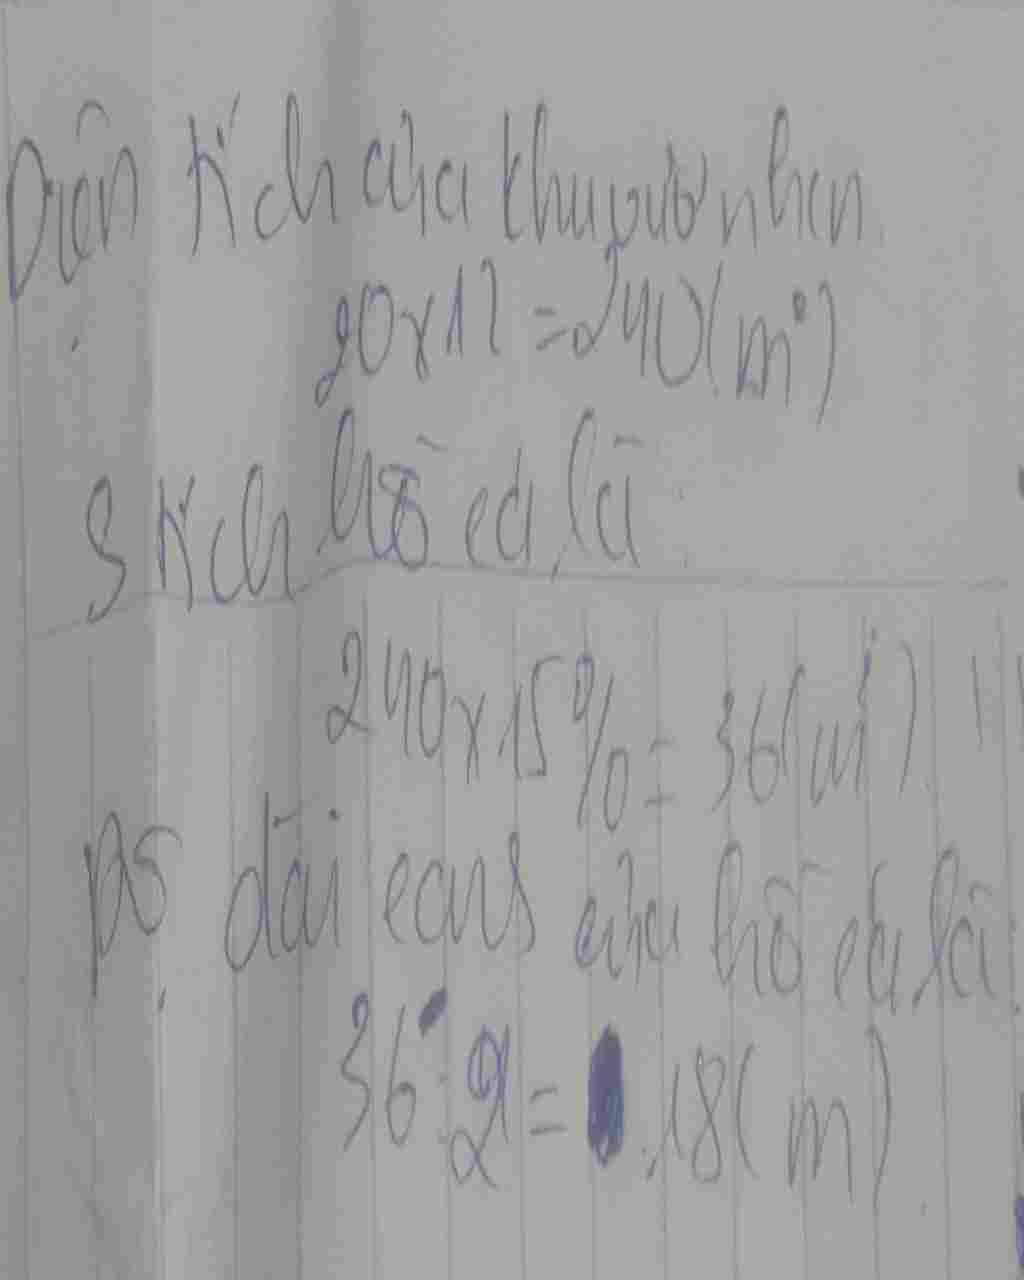 Diện tích của khu vườn hcn
20 x 12 = 240 (m²)
S tích hồ cá là
240 x 15% = 36 (m²)
Độ dài cạnh của hồ cá là:
36 : 2 = 18 (m)